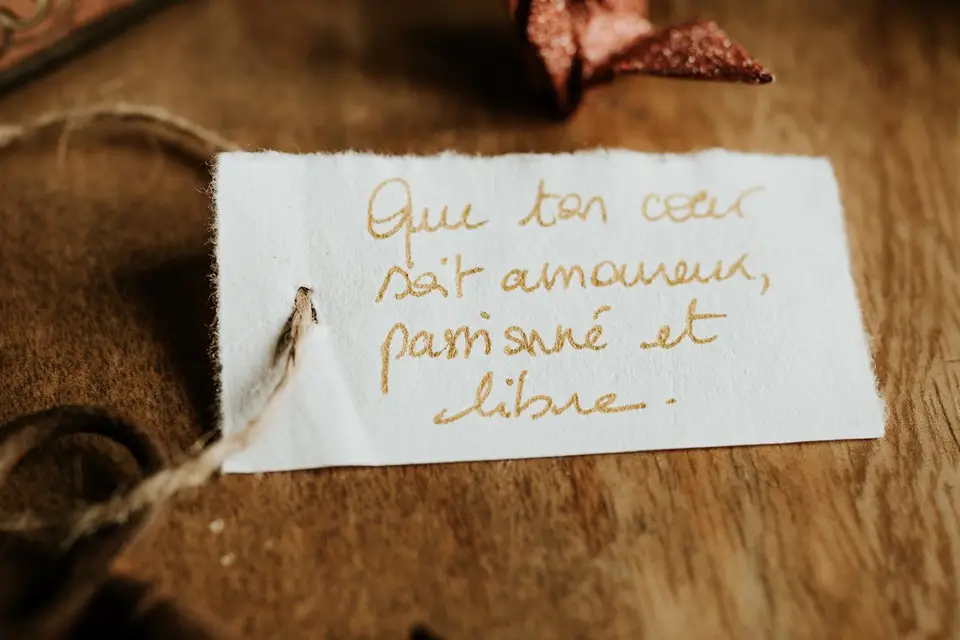 Que ton cœur
soit amoureux,
passionné et
libre.